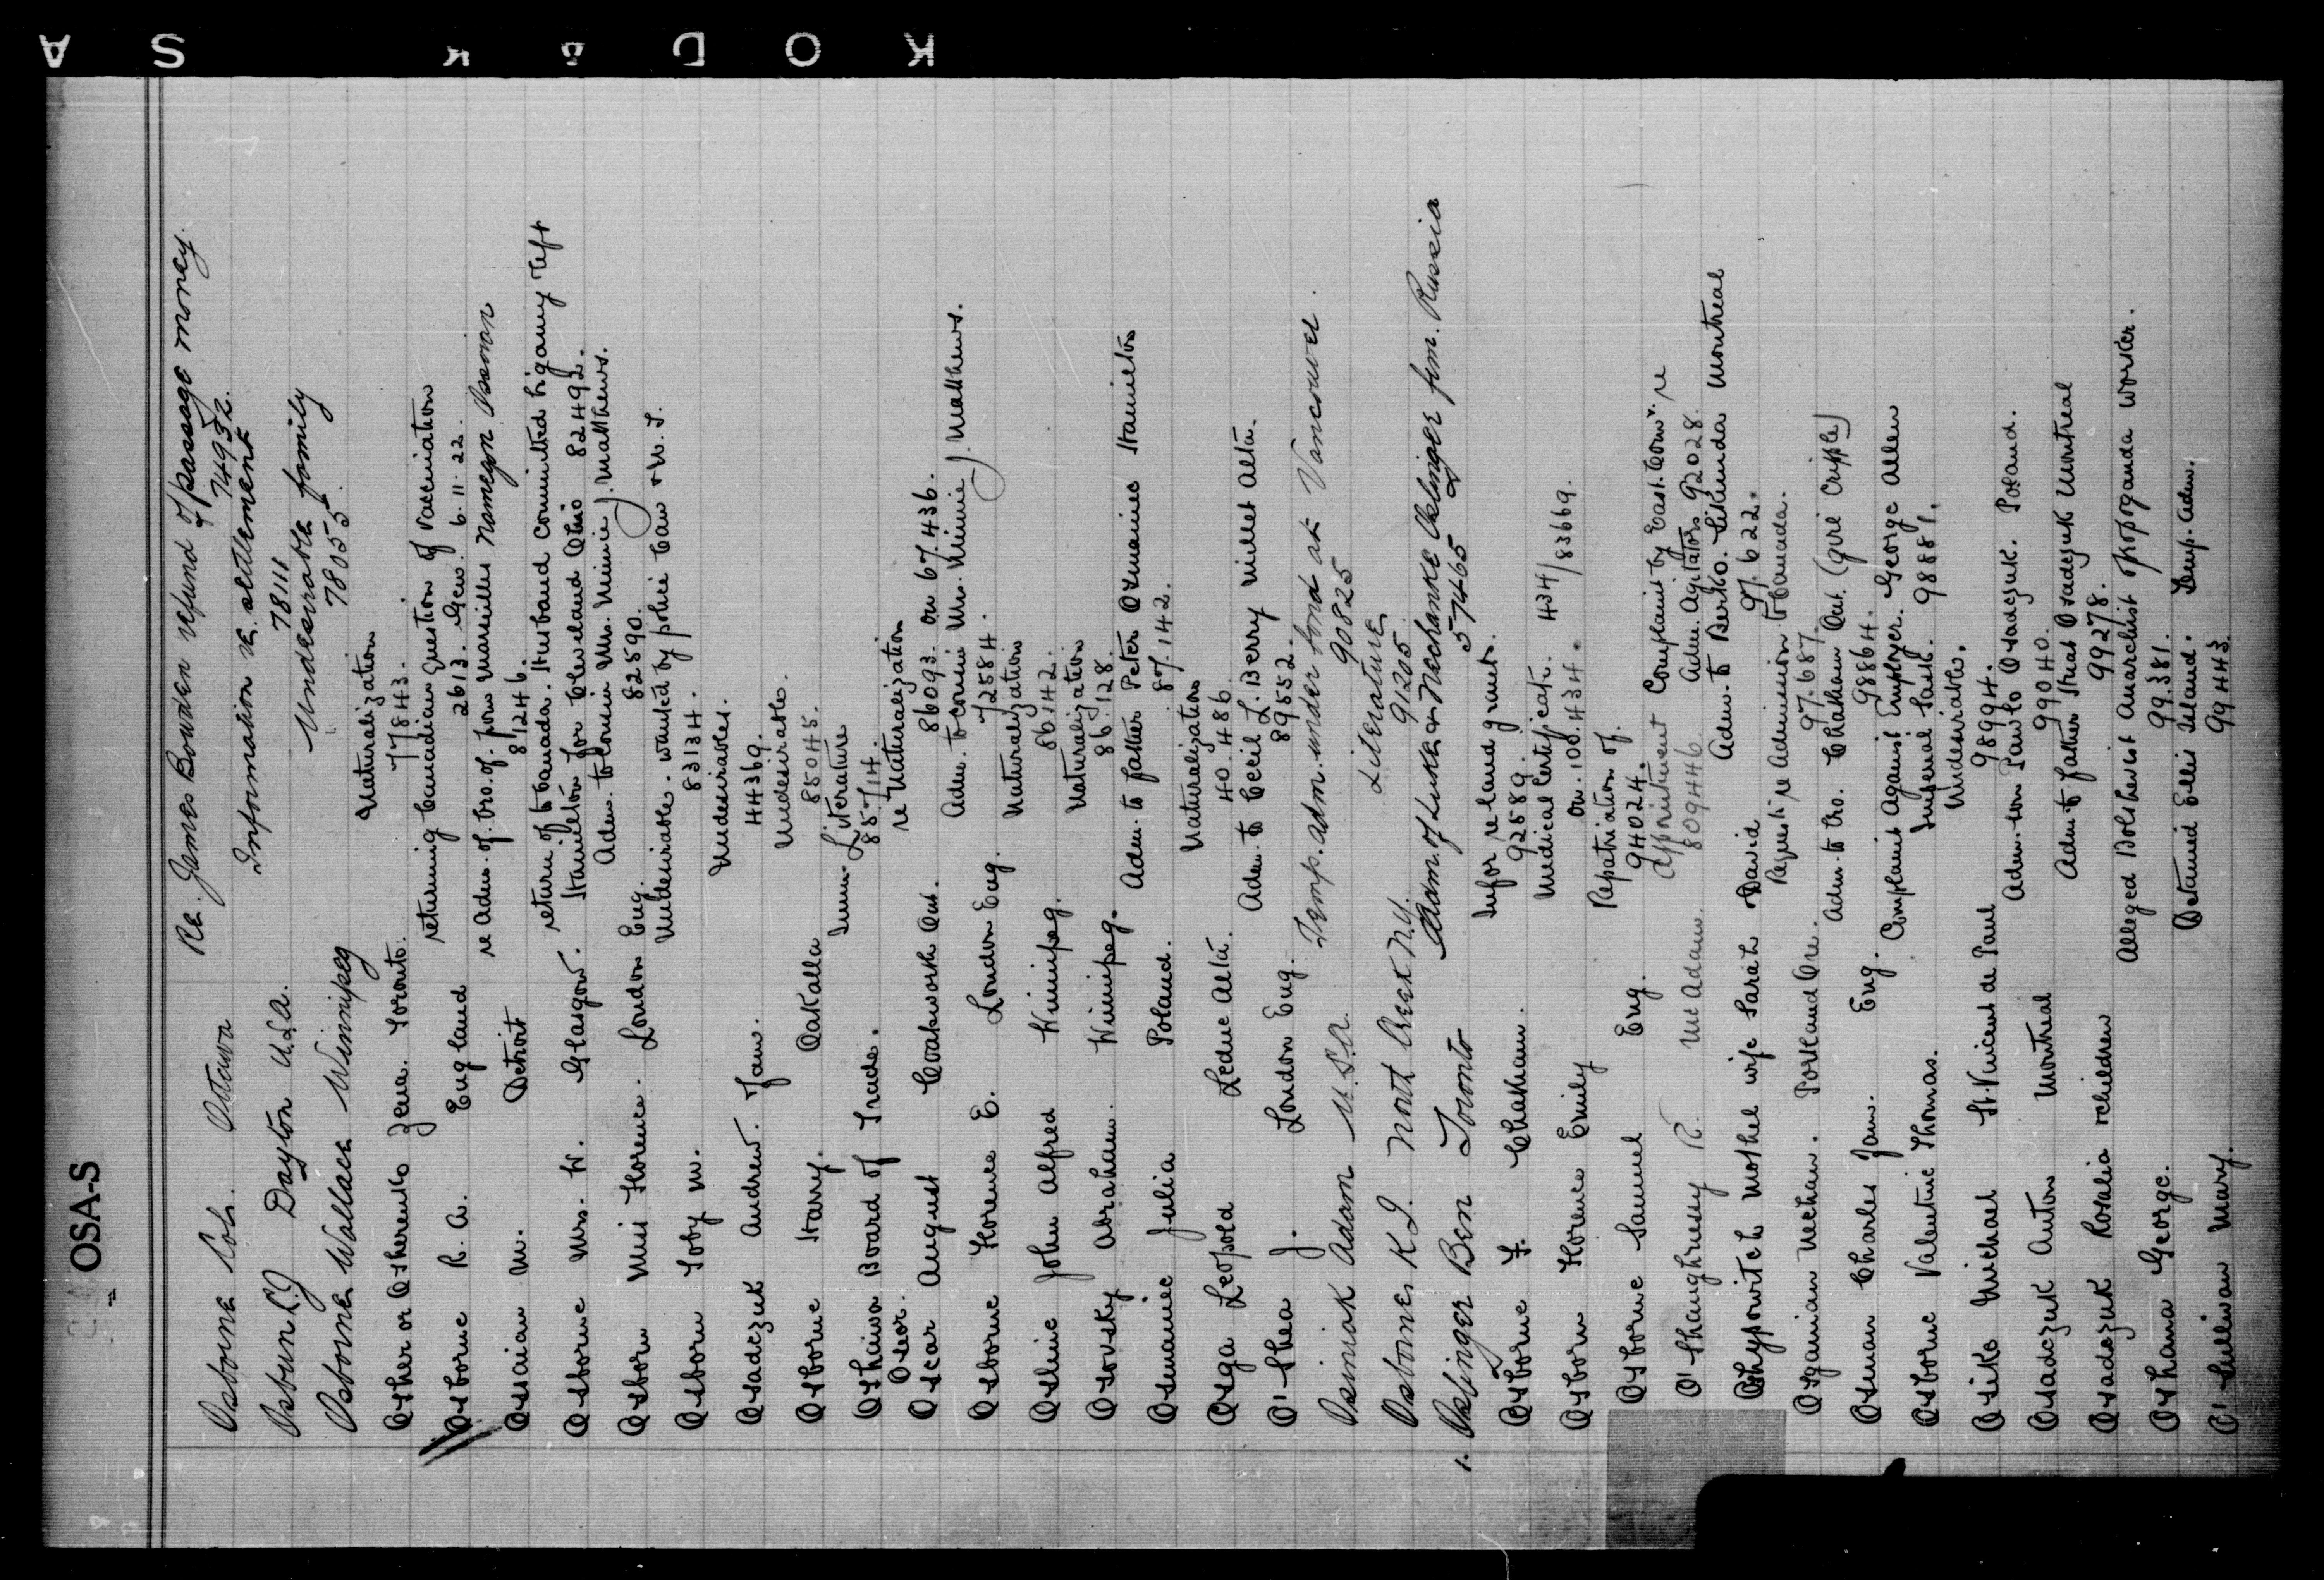 OSA-S
Osborne Rob. Ottawa Re. James Bowden refund of passage money
74932.
Osbun L J Dayton U.S.A. Information re. settlement
78111
Osborne Wallace Winnipeg Undesirable family
78055.
Osher or Osherenko Zena. Toronto. Naturalization
77843.
Osborne R. A. England returning Canadian question of Vaccination
2613. Gen. 6.11.22.
Ossian M. Detroit re Adm. of bro. of. from Marseilles
81246.
Osborne Mrs. W. Glasgow. return of to Canada. Husband committed bigamy left
Hamilton for Cleveland Ohio 82492.
Osborn Miss Florence. London Eng. Adm. to cousin Mrs. Minnie J. Matthews.
82590.
Osborn Toby M. Undesirable. wanted by police Can & U.S.
83134.
Osadczuk Andrew. Jaw. Undesirables.
44369.
Osborne Harry. Oakalla Undesirable.
85045.
Oshawa Board of Trade. Imm. Literature
85714.
Osear.
Oscar August Coatsworth Ont. re Naturalization
86093. on 67.436.
Osborne Florence E. London Eng. Adm. to cousin Mrs. Minnie J. Matthews.
72584.
Osline John Alfred Winnipeg. Naturalization
86142.
Osovsky Abraham. Winnipeg. Naturalization
86.128.
Osmaniec Julia Poland. Adm. to father Peter Osmaniec Hamilton
87.142.
Osga Leopold Leduc Alta. Naturalization
40.486
O'Shea J. London Eng. Adm. to Cecil L. Berry Millet Alta.
89552.
Osimiak Adam U.S.A. Temp. adm. under bond at Vancouver.
90825
Osborne K J. North Creek N.Y. Literature
91205.
1. Oslinger Ben Toronto Adm. of Luka & Mechanke Oslinger from. Russia
574465
Osborne F. Chatham. Infor re land grants.
92589.
Osborn Florence Emily Medical Certificate. 434/83669.
on. 100.434.
Osborne Samuel Eng. Repatriation of.
94024.
O'Shaughnessy R. McAdam. appointment Complaint by East. Comr. re
809446 Adm. Agitators 92028.
Oshyporvitch Mother wife Sarah David Adm. to Berko. Montreal
97.622.
Osganian Mechan. Portland Ore. Request re Admission to Canada.
97.687.
Osman Charles Jaw. Eng. Adm. to bro. Chatham Ont. (girl cripple)
98864.
Osborne Valentine Thomas. Complaint Against Employer. George Allen
Imperial Sask. 98881.
Osike Michael St. Vincent de Paul Undesirable.
98994.
Osadczuk Anton Montreal Adm. son Pawlo Osadczuk. Poland.
99040.
Osadczuk Rosalia & children Adm. to father Osadczuk Montreal
99278.
Oshana George. Alleged Bolshevist Anarchist propoganda worker.
99.381.
O'Sullivan Mary. Detained Ellis Island. Temp. Adm.
99443.